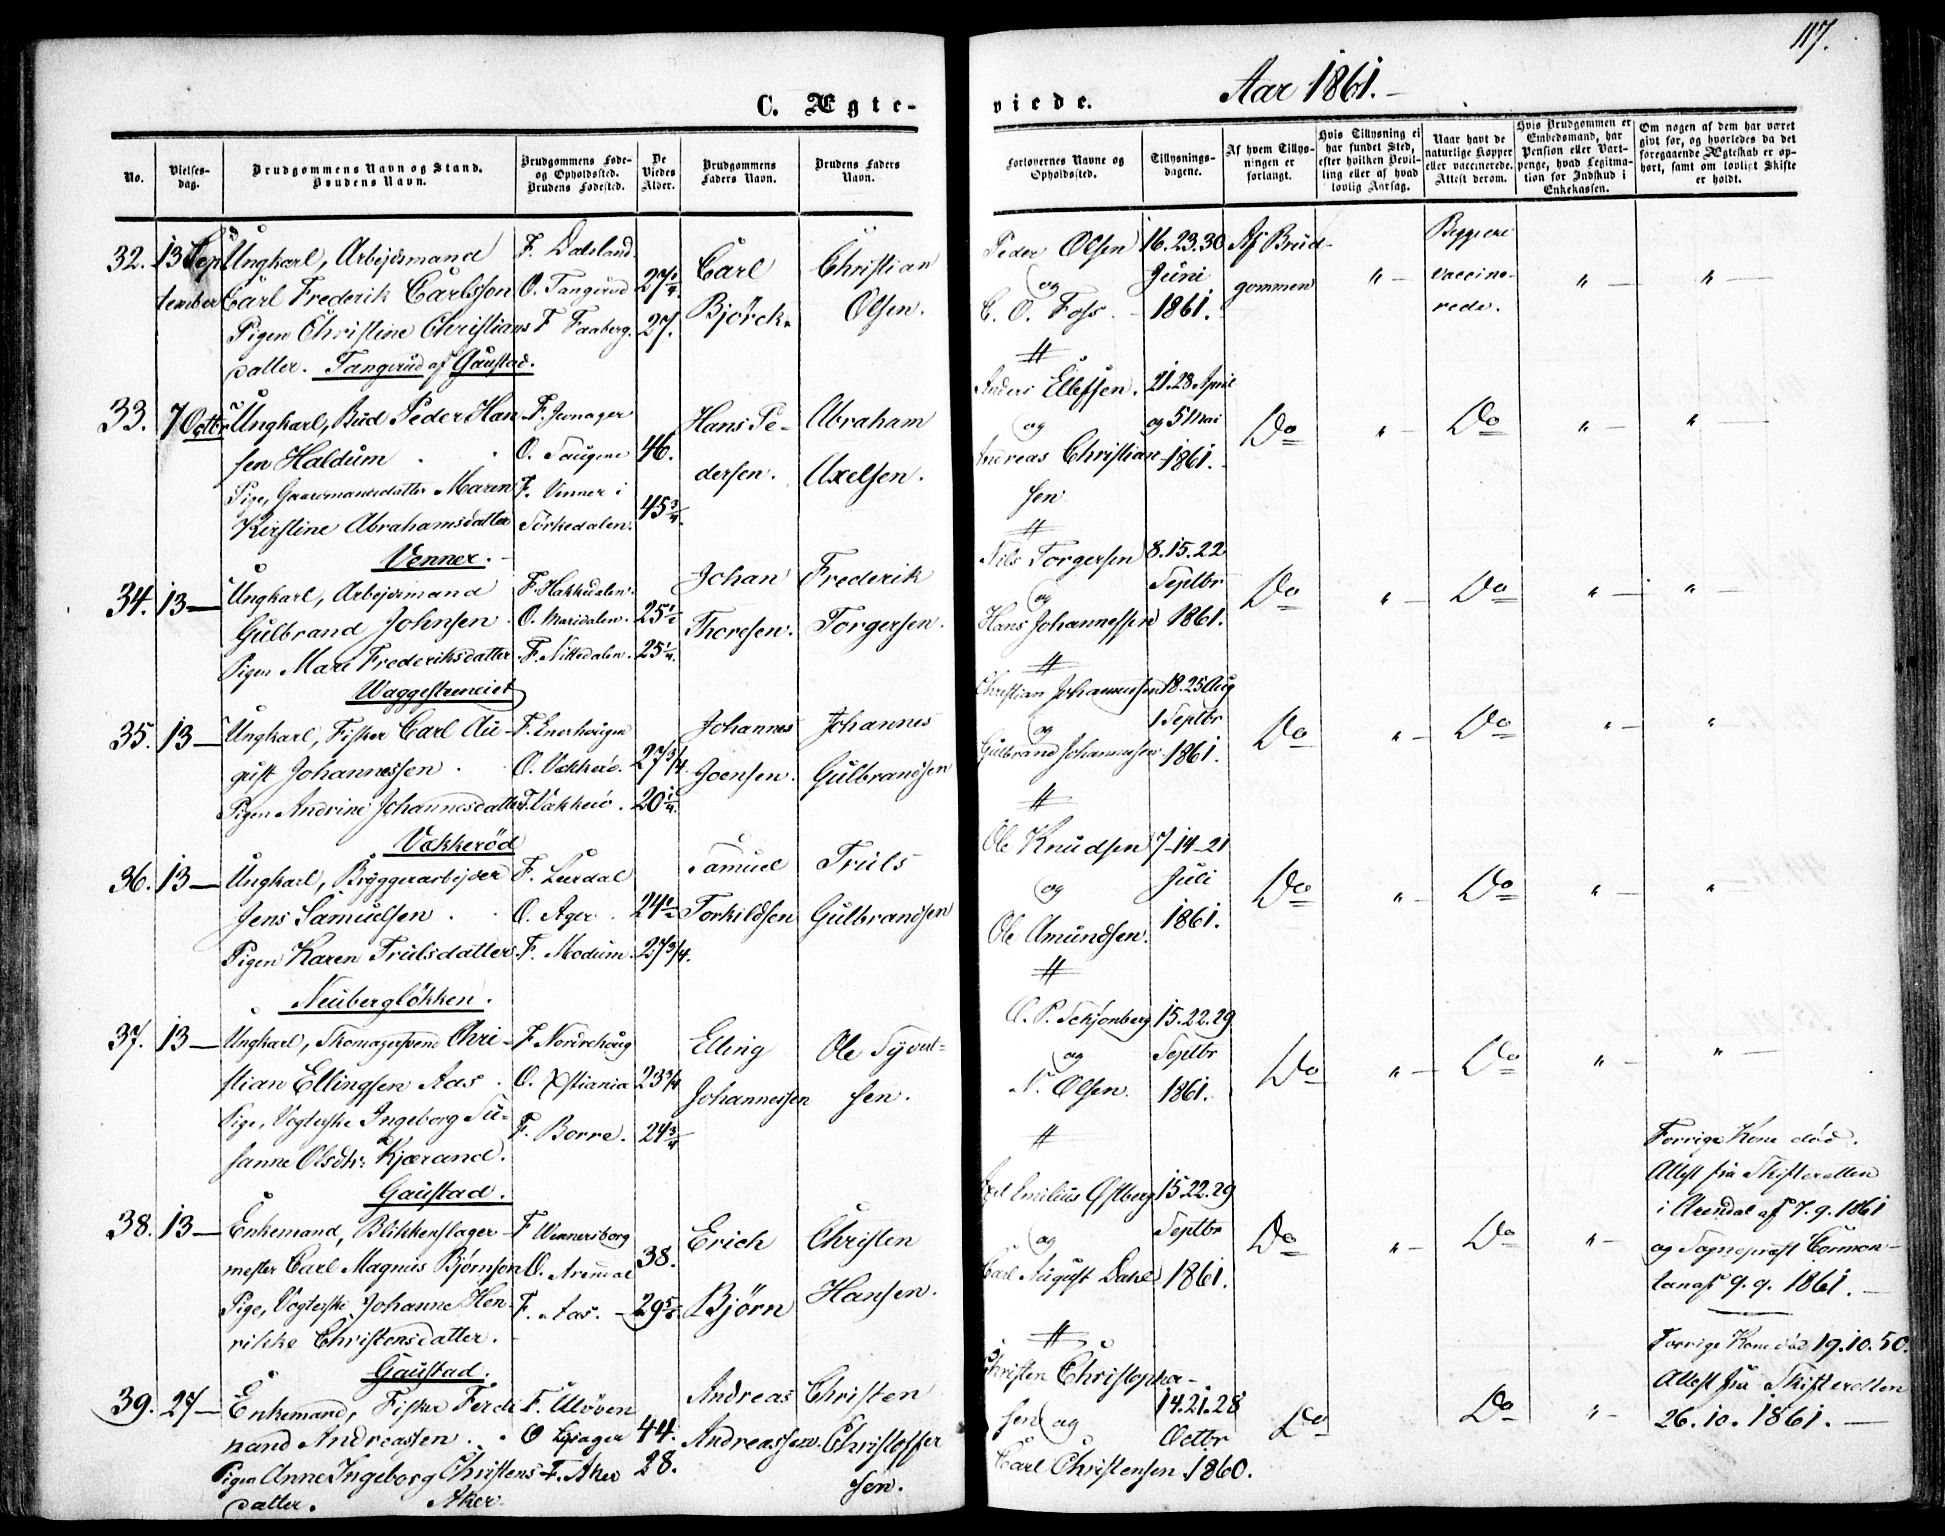 117.
C. Ægte-
viede.
Aar 1861.
No.
Vielses-
dag.
Brudgommens Navn og Stand.
Brudens Navn.
Brudgommens Føde-
og Opholdssted.
Brudens Fødested.
De
Viedes
Alder.
Brudgommens
Faders Navn.
Brudens Faders
Navn.
Forlovernes Navne og
Opholdssted.
Tillysnings-
dagene.
Af hvem Tillys-
ningen er
forlangt.
Hvis Tillysning ei
har fundet Sted,
efter hvilken Bevil-
ling eller af hvad
lovlig Aarsag.
Naar havt de
naturlige Kopper
eller vaccinerede.
Attest derom.
Hvis Brudgommen er
Embedsmand, har
Pension eller Vart-
penge, hvad Legitima-
tion for Indskud i
Enkekassen.
Om nogen af dem har været
gift før, og hvorledes da det
foregaaende Ægteskab er op-
hørt, samt om lovligt Skifte
er holdt.
32. 13 Sep-
tember
Ungkarl, Arbejdsmand
Carl Frederik Carlsson
Pigen Christine Christians
datter. Tangerud af Gaustad.
F. Dalsland
O. Tangerud
F. Faaberg.
27 1/4
27.
Carl
Bjørck.
Christian
Olsen.
Peder Olsen
og
C. O. Foss.
16. 23. 30
Juni
1861.
Af Brud-
gommen
" Begge ere
vaccine-
rede.
" "
33. 7 Octbr
Ungkarl, Bud Peder Han
sen Haldum
Pige, Gaardmandsdatter Maren
Kirstine Abrahamsdatter
Venner.
F. Jevnager
O. Taugene
F. Venner i
Sørkedalen.
46.
45 3/4
Hans Pe-
dersen.
Abraham
Axelsen.
Anders Ellefsen.
og
Andreas Christian-
sen
21. 28 April
og 5 Mai
1861.
Do " Do " "
34. 13
Ungkarl, Arbejdsmand
Gulbrand Johnsen
Pigen Mari Frederiksdatter
F. Hakkedalen.
O. Maridalen.
F. Nittedalen.
25 1/2
25 1/4
Johan
Thoresen.
Frederik
Torgersen.
Nils Torgersen
og
Hans Johannessen
8. 15. 22
Septbr
1861.
Do " Do " "
35. 13
Ungkarl, Fisker Carl Au-
gust Johannessen
Pigen Andrine Johannesdatter
Vækkerød
F. Enerhaugen
O. Vækkerø.
F. Vækkerø.
27 3/4
20 1/4
Johannes
Joensen.
Johannes
Gulbrandsen
Christian Johannessen
og
Gulbrand Johannessen
18. 25 Aug
1 Septbr
1861.
Do " Do " "
36. 13
Ungkarl, Bryggerarbejder
Jens Samuelsen
Pigen Karen Trulsdatter
Neubergløkken.
F. Lurdal
O. Ager
F. Modum.
27 3/4
Samuel
Torkildsen
Truls
Gulbrandsen
Ole Knudsen
og
Ole Amundsen.
7-14-21
Juli
1861.
Do " Do " "
37. 13
Ungkarl, Skomagersvend Chri-
stian Ellingsen Aas
Pige, Vogterske Ingeborg Su-
sanne Olsdtr Kjærand.
Gaustad.
F. Norderhoug
O. Xstiania
F. Borre.
23 3/4
24 3/4
Elling
Johannessen
Ole Syvert-
sen.
O. P. Schjønberg
og
N. Olsen.
15. 22. 29
Septbr
1861.
Do " Do " "
38. 13
Enkemand, Blikkenslager-
mester Carl Magnus Bjørnson
Pige, Vogterske Johanne Hen-
rikke Christensdatter.
Gaustad.
F. Wennersborg
O. Arendal
F. Aas.
38.
Erich
Bjørn
Christen
Hansen.
Axel Emilius Østberg
og
Carl August Dahl
15. 22. 29
Septbr
1861.
Do " Do "
Forrige Kone død.
Attest fra Skifteretten
i Arendal af 7. 9. 1861
og Sognepræst Cormon-
tans 9. 9. 1861.
39. 27
Enkemand, Fisker Ferdi
nand Andreassen
Pigen Anne Ingeborg Christens
datter. Aker.
F. Uløven
F. Aker
44.
28.
Andreas
Andreassen
Christen
Christoffer
sen.
Christen Christopher-
sen og
Carl Christensen
14. 21. 28
Octbr
1860.
Do Do "
Forrige Kone død 19. 10. 50.
Attest fra Skifteretten
26. 10. 1861.